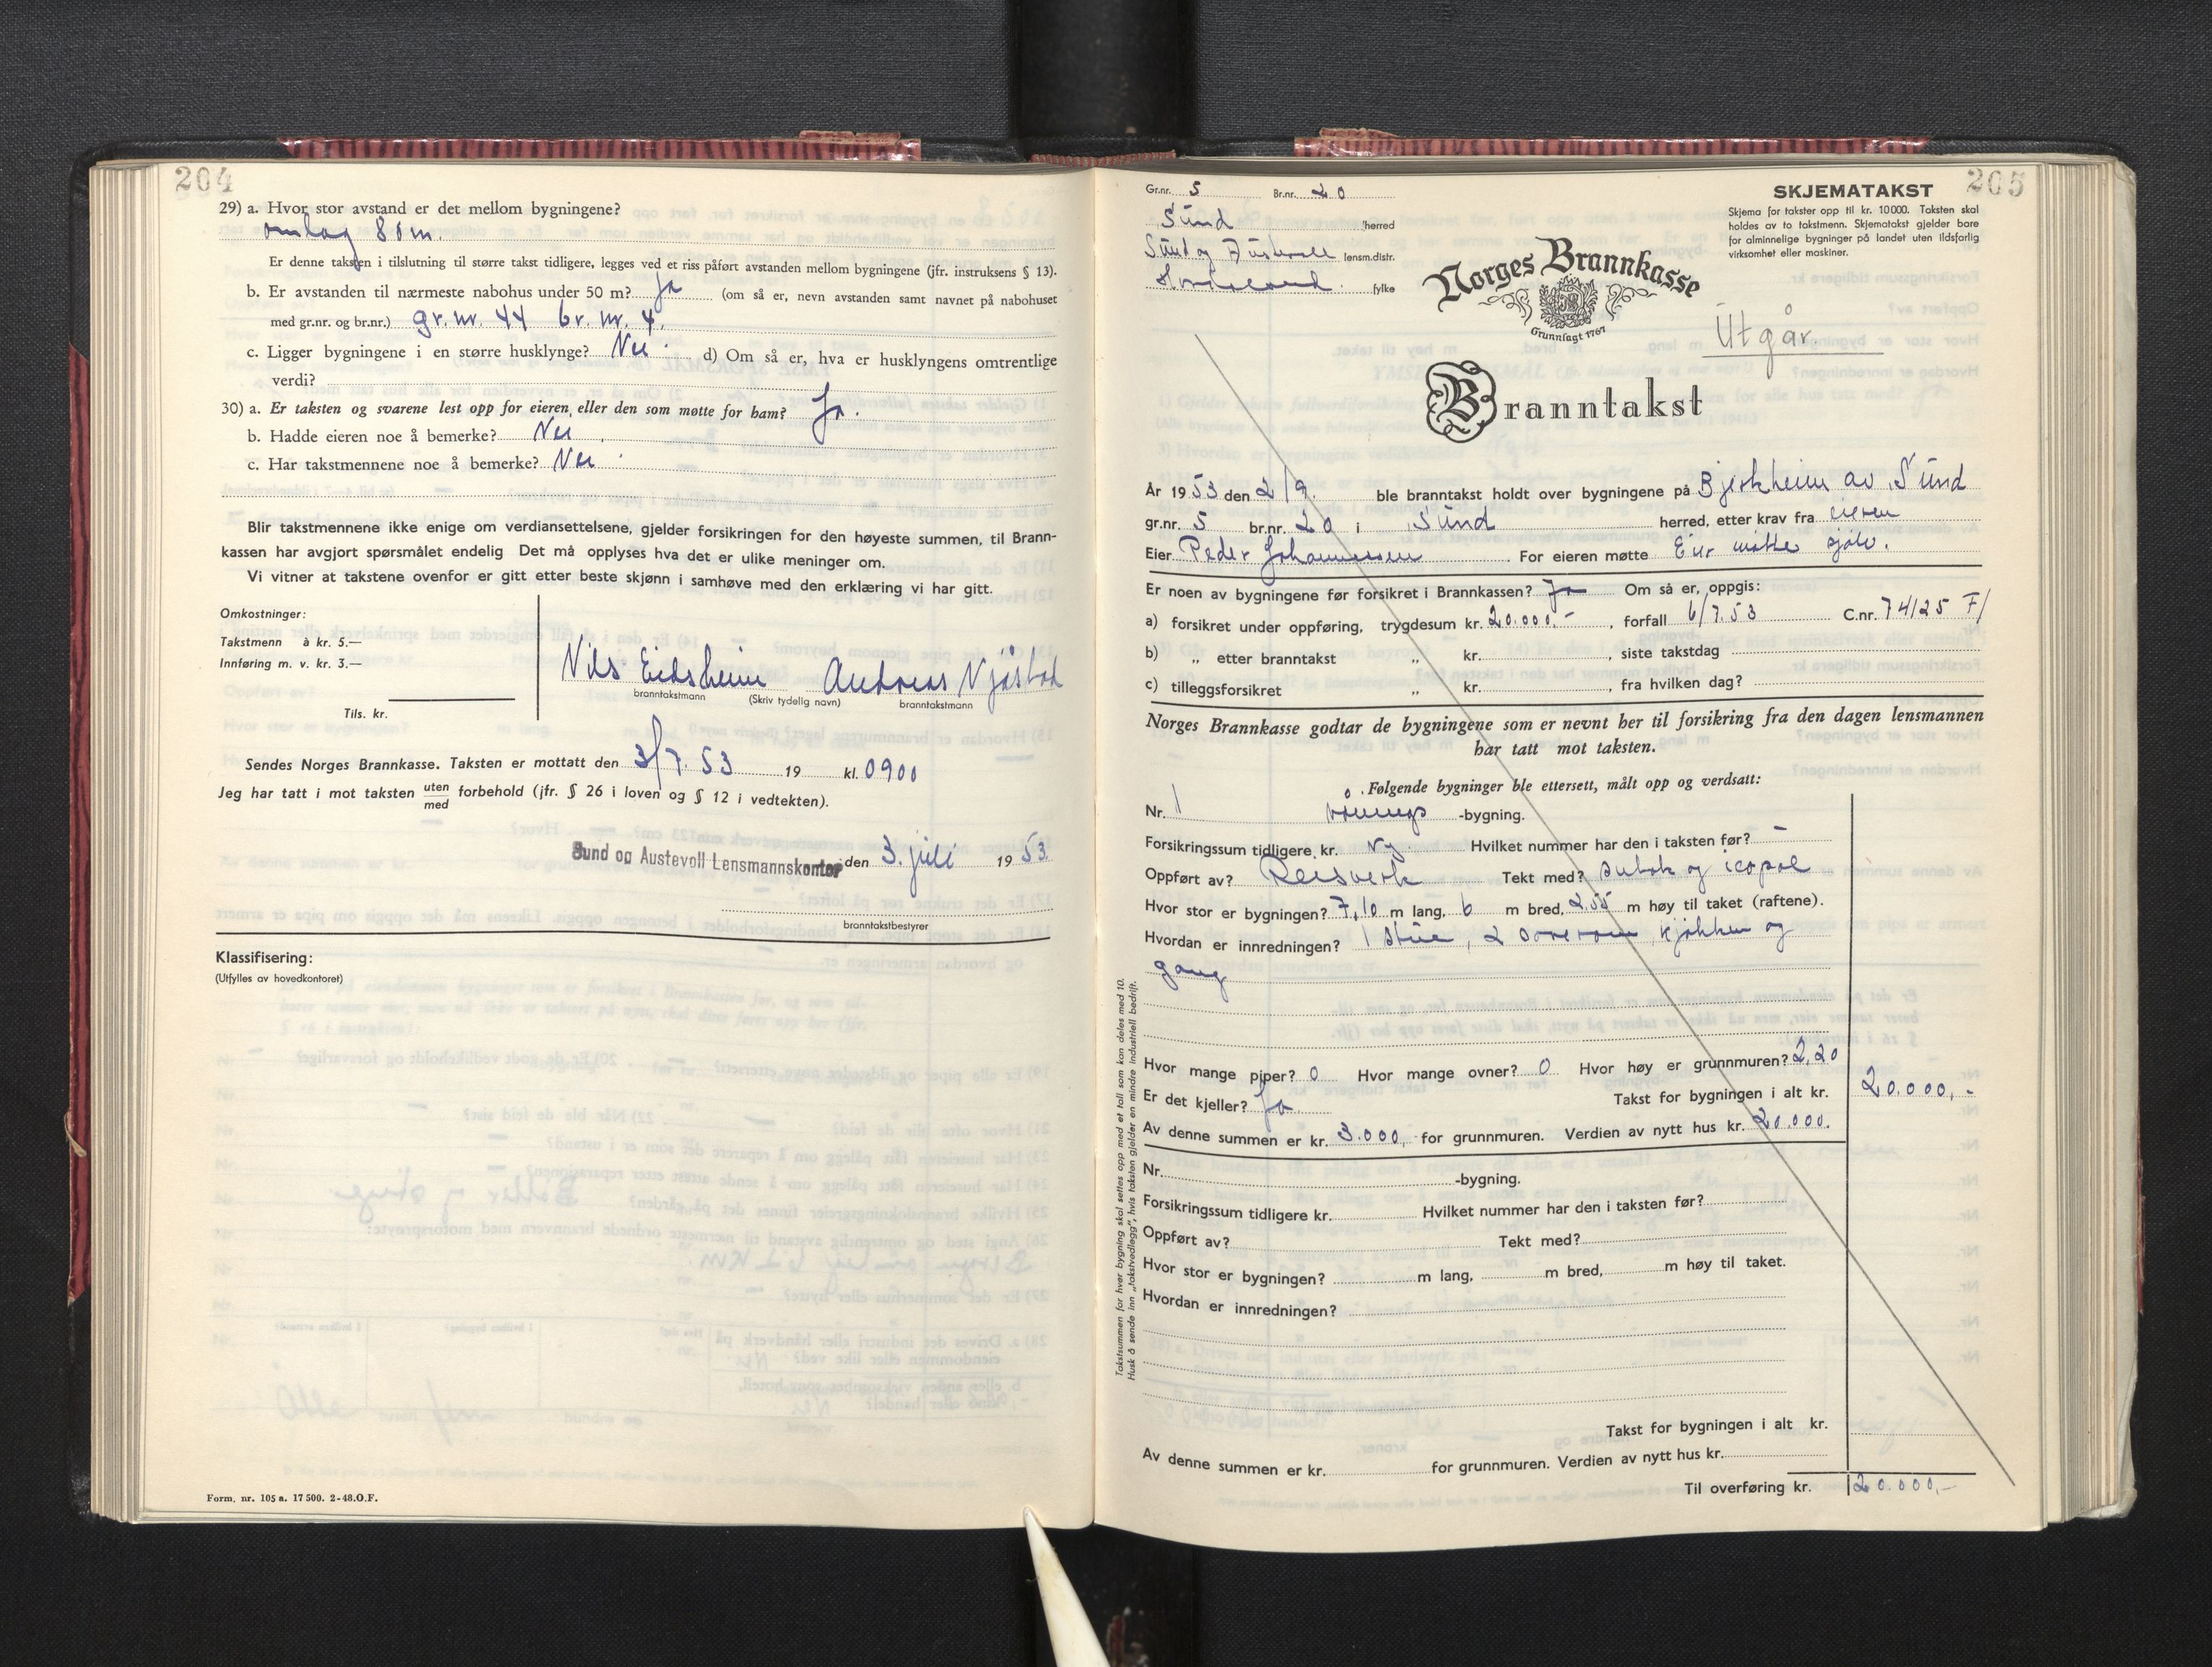 204
29) a. Hvor stor avstand er det mellom bygningene?
omlag 80 m.
Er denne taksten i tilslutning til større takst tidligere, legges ved et riss påført avstanden mellom bygningene (jfr. instruksens § 13).
b. Er avstanden til nærmeste nabohus under 50 m? Ja (om så er, nevn avstanden samt navnet på nabohuset
med gr.nr. og br.nr.) gr. nr. 44 br. nr. 4.
c. Ligger bygningene i en større husklynge? Nei. d) Om så er, hva er husklyngens omtrentlige
verdi?
30) a. Er taksten og svarene lest opp for eieren, eller den som møtte for ham? Ja.
b. Hadde eieren noe å bemerke? Nei.
c. Har takstmennene noe å bemerke? Nei.
Blir takstmennene ikke enige om verdiansettelsene, gjelder forsikringen for den høyeste summen, til Brann-
kassen har avgjort spørsmålet endelig Det må opplyses hva det er ulike meninger om.
Vi vitner at takstene ovenfor er gitt etter beste skjønn i samhøve med den erklæring vi har gitt.
Omkostninger:
Takstmenn à kr. 5.—
Innføring m. v. kr. 3.—
Tils. kr.
Nils Eidsheim Andreas Njåstad
branntakstmann (Skriv tydelig navn) branntakstmann
Sendes Norges Brannkasse. Taksten er mottatt den 3/7. 53 19 kl. 0900
Jeg har tatt i mot taksten uten/med forbehold (jfr. § 26 i loven og § 12 i vedtekten).
Sund og Austevoll Lensmannskontor den 3. juli 1953
branntakstbestyrer
Klassifisering:
(Utfylles av hovedkontoret)
Form. nr. 105 a. 17 500. 2-48. O.F.
205
Gr.nr. 5 Br.nr. 20
Sund herred
Sund og Austevoll lensm.distr.
Hordaland fylke
SKJEMATAKST
Skjema for takster opp til kr. 10000. Taksten skal
holdes av to takstmenn. Skjematakst gjelder bare
for alminnelige bygninger på landet uten ildsfarlig
virksomhet eller maskiner.
Norges Brannkasse
Grunnlagt 1767
Utgår.
Branntakst
År 1953 den 2/9. ble branntakst holdt over bygningene på Bjerkheim av Sund
gr.nr. 5 br.nr. 20 i Sund herred, etter krav fra eieren
Eier Peder Johannessen For eieren møtte Eier møtte sjølv.
Er noen av bygningene før forsikret i Brannkassen? Ja Om så er, oppgis:
a) forsikret under oppføring, trygdesum kr. 20.000.-, forfall 6/7.53 C.nr. 74125 F/
b) „ etter branntakst „ kr. , siste takstdag
c) tilleggsforsikret „ kr. , fra hvilken dag?
Norges Brannkasse godtar de bygningene som er nevnt her til forsikring fra den dagen lensmannen
har tatt mot taksten.
Følgende bygninger ble ettersett, målt opp og verdsatt:
Nr. 1 vånings -bygning.
Forsikringssum tidligere kr. Ny. Hvilket nummer har den i taksten før? -
Oppført av? Reisverk Tekt med? sutak og icopal
Hvor stor er bygningen? 7,10 m lang, 6 m bred, 2,55 m høy til taket (raftene).
Hvordan er innredningen? 1 stue, 2 soverom, kjøkken og
gang
Hvor mange piper? 0 Hvor mange ovner? 0 Hvor høy er grunnmuren? 2,20
Er det kjeller? Ja Takst for bygningen i alt kr. 20.000,-
Av denne summen er kr. 3.000, for grunnmuren. Verdien av nytt hus kr. 20.000.
Nr. -bygning.
Forsikringssum tidligere kr. Hvilket nummer har den i taksten før?
Oppført av? Tekt med?
Hvor stor er bygningen? m lang, m bred, m høy til taket.
Hvordan er innredningen?
Takst for bygningen i alt kr.
Av denne summen er kr. for grunnmuren. Verdien av nytt hus kr.
Til overføring kr. 20.000,-
Takstsummen for hver bygning skal settes opp med et tall som kan deles med 10.
Husk å sende inn „takstvedlegg", hvis taksten gjelder en mindre industriell bedrift.